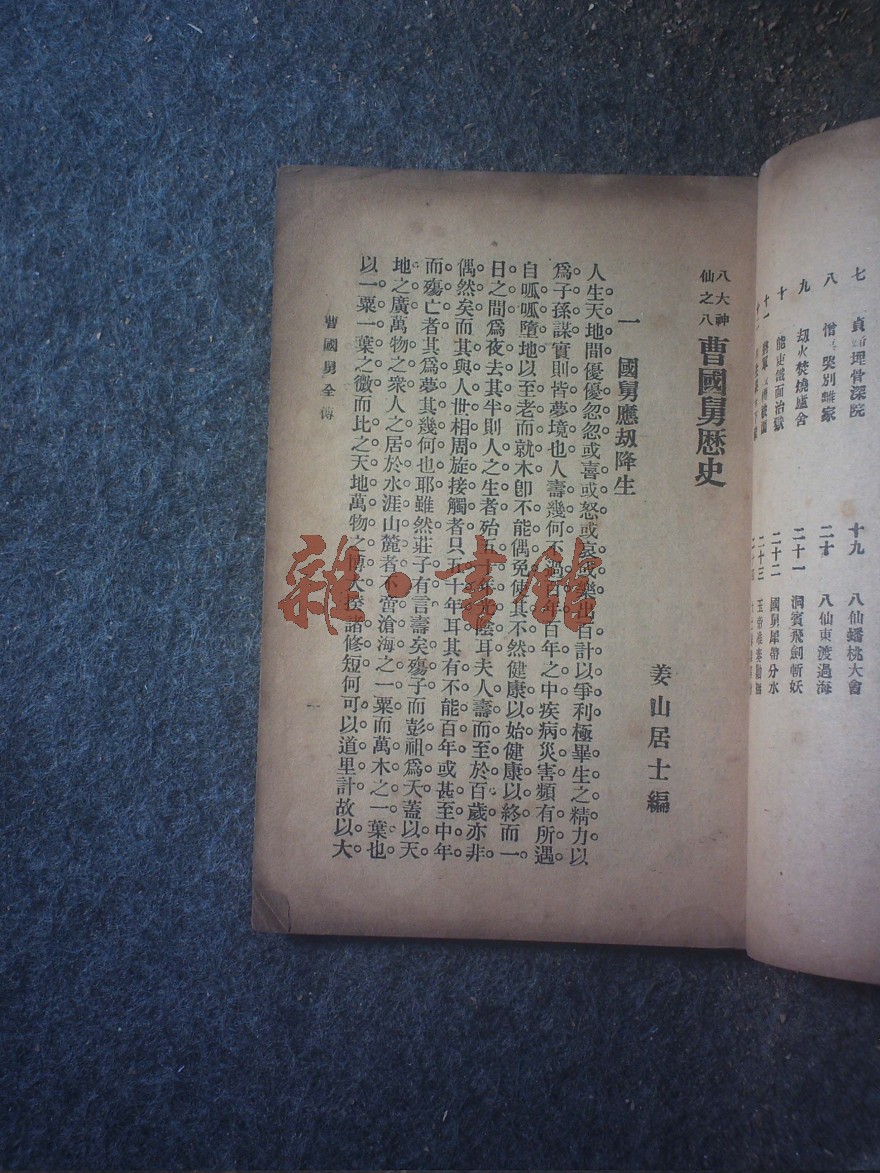 七　貞婦埋骨深院　十九　八仙蟠桃大會
八　哭別離家　二十　八仙東渡過海
九　劫火焚燒廬舍　二十一　洞賓飛劍斬妖
十　鐵面治獄　二十二　國舅犀帶分水
十一　二十三
八大神仙之八　曹國舅歷史
姜山居士編
一　國舅應劫降生
人生天地間優優忽忽或喜或怒或哀或樂出百計以爭利極畢生之精力以
爲子孫謀實則皆夢境也人壽幾何不過百年百年之中疾病災害頻有所遇
自呱呱墮地以至老而就木卽不能偶免使其不然健康以始健康以終而一
日之間爲夜去其半則人之生者殆五十年光陰耳夫人壽而至於百歲亦非
偶然矣而其與人世相周旋接觸者只五十年耳其有不能百年或甚至中年
而殤亡者其爲夢其幾何也耶雖然莊子有言壽矣殤子而彭祖爲夭蓋以天
地之廣萬物之衆人之居於水涯山麓者不啻滄海之一粟而萬木之一葉也
以一粟一葉之微而比之天地萬物之博大揆諸修短何可以道里計故以大
曹國舅全傳
一
雜·書館